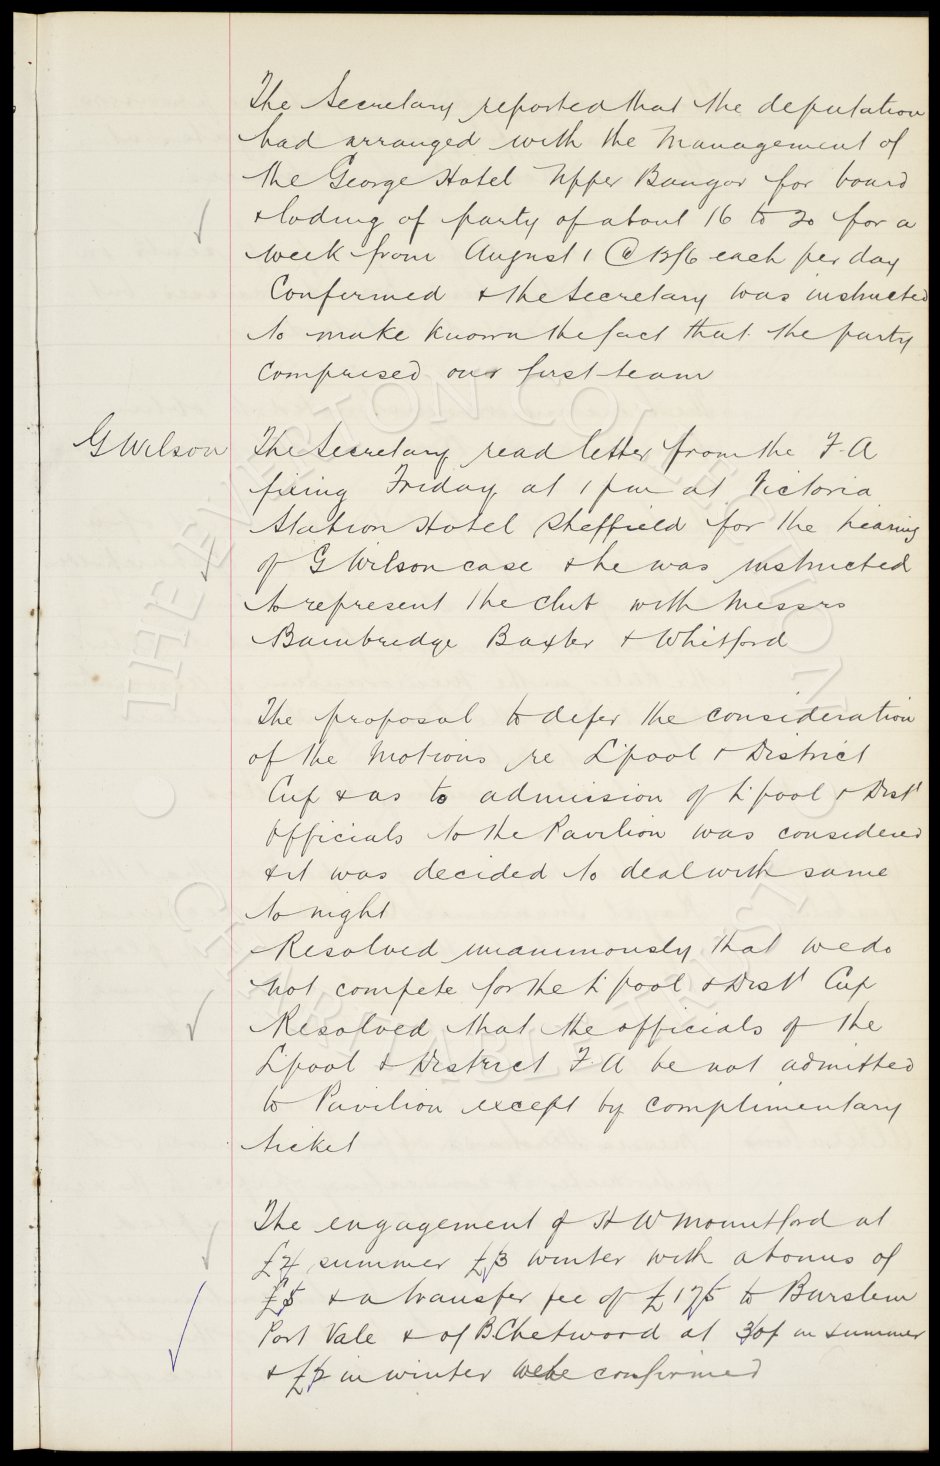 The Secretary reported that the deputation
had arranged with the Management of
the George Hotel Upper Bangor for board
& loding of party of about 16 to 20 for a
week from August 1 @ 12/6 each per day
Confirmed & the Secretary was instructed
to make known the fact that the party
comprised our first team
G Wilson
The Secretary read letter from the F.A
fixing Friday at 1 pm at Victoria
Station Hotel Sheffield for the hearing
of G Wilson case & he was instructed
to represent the club with Messrs
Bainbridge Baxter & Whitford
The proposal to defer the consideration
of the Motions re L'pool & District
Cup & as to admission of L'pool & Dist'
Officials to the Pavilion was considered
& it was decided to deal with same
to night
Resolved unanimously that we do
not compete for the L'pool & Dist' Cup
Resolved that the officials of the
L'pool & District F A be not admitted
to Pavilion except by complimentary
ticket
The engagement of H W Mountford at
summer £3 winter with a bonus of
£5 & a transfer fee of £175 to Burslem
Port Vale & of B. Chetwood at 30/- in summer
& £2 in winter were confirmed
THE EVERTON COLLECTION
CHARITABLE TRUST